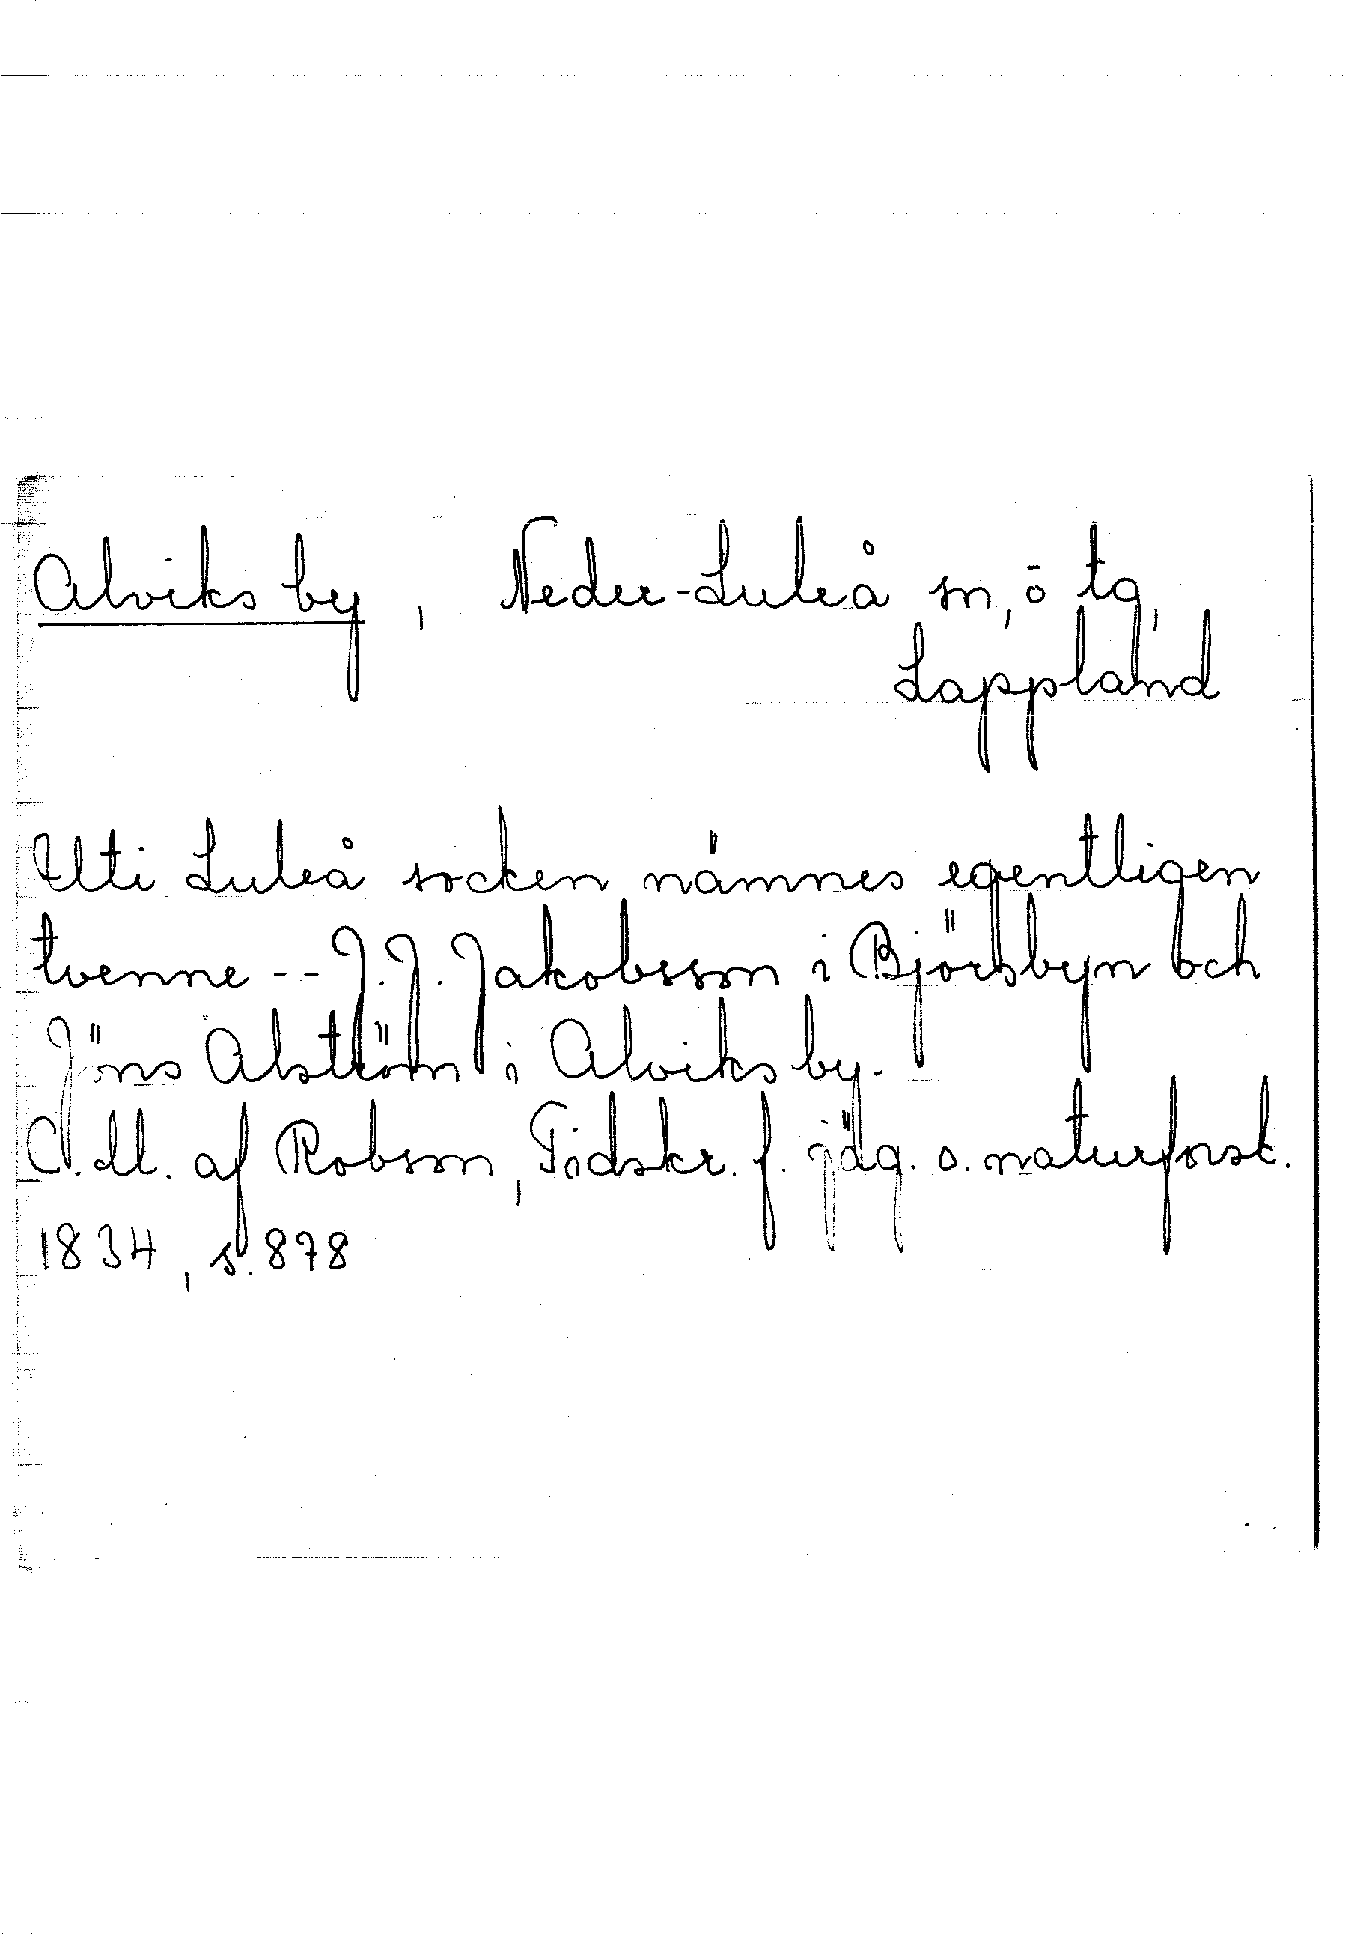 Alviks by, Neder-Luleå sn, ö tg,
Lappland
Uti Luleå socken nämnes egentligen
tvenne -- J. J. Jakobsson i Björsbyn och
Jöns Alström i Alviks by.
C.M. af Robson, Tidskr. f. jäg. o. naturforsk.
1834, s. 878